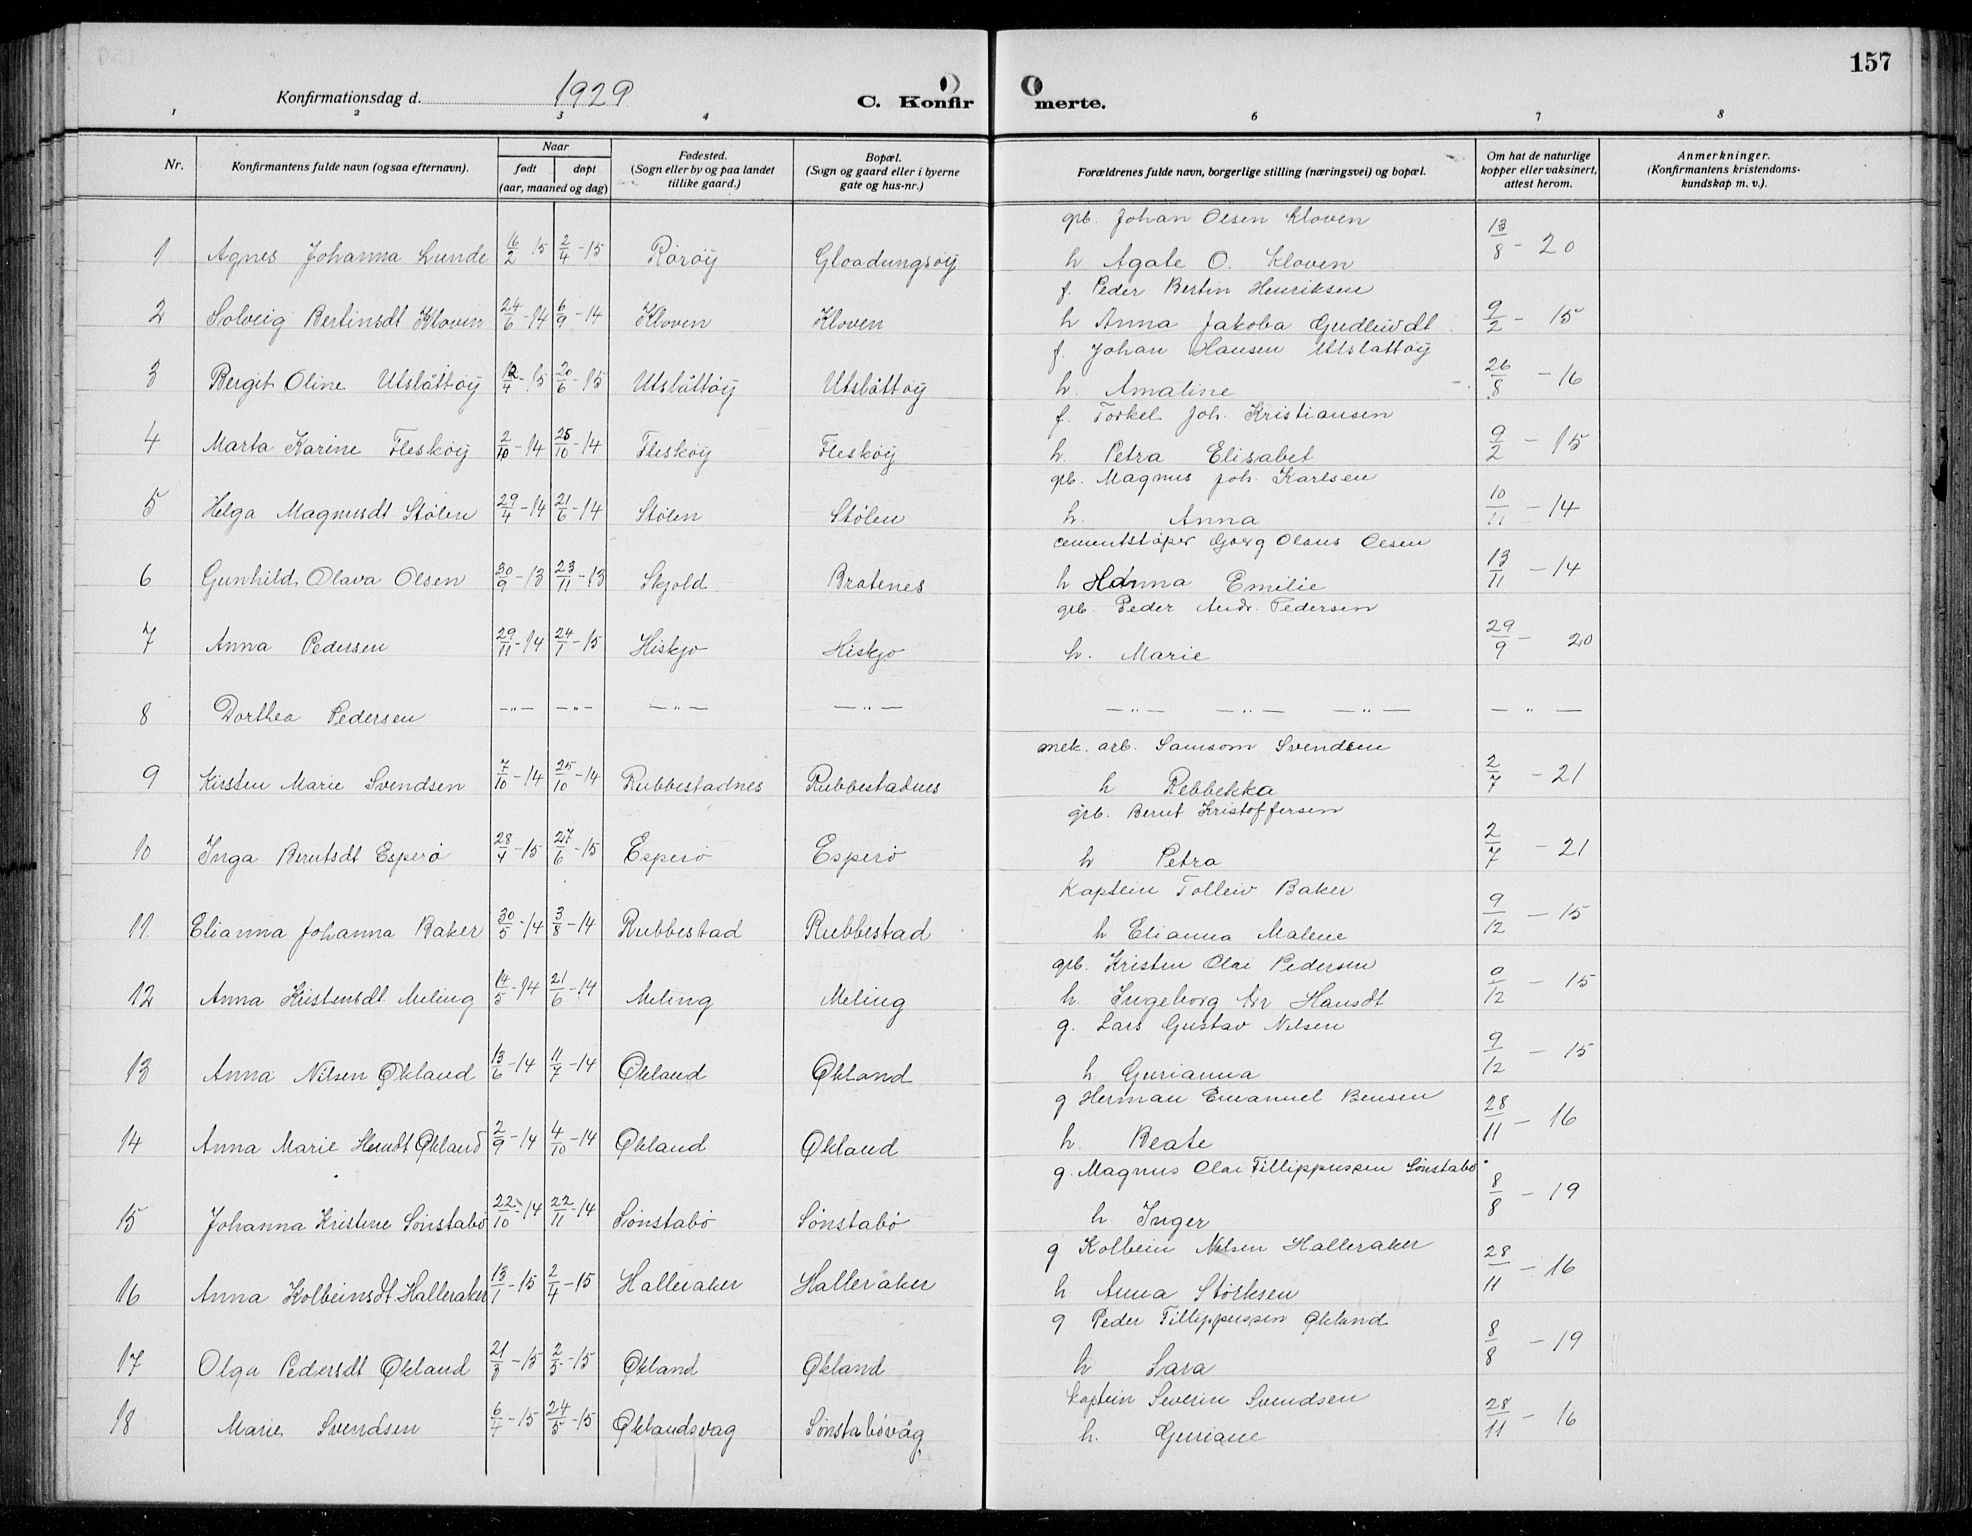 157
Konfirmationsdag d. 1929
C. Konfirmerte.
1 2 3 4 6 7 8
Nr.
Konfirmantens fulde navn (ogsaa efternavn).
Naar
født døpt
(aar, maaned og dag)
Fødested.
(Sogn eller by og paa landet
tillike gaard.)
Bopæl.
(Sogn og gaard eller i byerne
gate og hus-nr.)
Forældrenes fulde navn, borgerlige stilling (næringsvei) og bopæl.
Om hat de naturlige
kopper eller vaksinert,
attest herom.
Anmerkninger.
(Konfirmantens kristendoms-
kundskap m. v.).
grb. Johan Olsen Kloven
1 Agnes Johanna Lunde 16/2-15 2/4-15 Rorøy h Agate O. Kloven 13/8-20
f. Peder Bertin Henriksen
2 Solveig Bertinsdt Kloven 24/6-14 6/9-14 Kloven Kloven h Anna Jakoba 9/2-15
f. Johan Hansen Utslåttøy
3 Bergit Oline Utslåttøy 12/4-15 20/6-15 Utslåttøy Utslåttøy h. Amaline 26/8-16
f. Torkel Joh. Kristiansen
4 Marta Karine Fleskøy 2/10-14 25/10-14 Fleskøy Fleskøy h. Petra Elisabet 9/2-15
grb. Magnus Joh. Karlsen
5 Helga Magnusdt Stølen 29/4-14 21/6-14 Stølen Stølen h. Anna 10/11-14
cementstøper Georg Olaus Olsen
6 Gunhild Olava Olsen 30/9-13 23/11-13 Skjold Bratenes h Hanna Emilie 13/11-14
grb. Peder Andr. Pedersen
7 Anna Pedersen 29/11-14 24/1-15 Hiskjo Hiskjo h. Marie 29/9-20
8 Dorthea Pedersen —"— —"— —"— —"— —"— —"— —"— — " —
mek. arb. Samsom Svendsen
9 Kirsten Marie Svendsen 7/10-14 25/10-14 Rubbestadnes Rubbestadnes h Rebbekka 2/7-21
grb. Berut Kristoffersen
10 Inga Berutsdt Esperø 28/4-15 27/6-15 Esperø Esperø h Petra 2/7-21
Kaptein Tolleiv Baker
11 Elianna Johanna Baker 30/5-14 3/8-14 Rubbestad Rubbestad h Elianna Malene 9/12-15
grb. Kristen Olai Pedersen
12 Anna Kristensdt Meling 14/5-14 21/6-14 Meling Meling h. Ingeborg Hansdt 9/12-15
g. Lars Gustav Nilsen
13 Anna Nilsen Økland 13/6-14 11/7-14 Økland Økland h. Gurianna 9/12-15
g Herman Emanuel Bensen
14 Anna Marie Økland 2/9-14 4/10-14 Økland Økland h. Beate 28/11-16
g. Magnus Olai Fillippussen Sønstabø
15 Johanna Kristine Sønstabø 22/10-14 22/11-14 Sønstabø Sønstabø h. Inger 8/8-19
g Kolbein Nilsen Halleraker
16 Anna Kolbeinsdt. Halleraker 13/1-15 2/4-15 Halleraker Halleraker h Anna Størksen 28/11-16
g Peder Fillippussen Økland
17 Olga Pedersdt Økland 21/3-15 2/5-15 Økland Økland h Sara 8/8-19
Kaptein Severin Svendsen
18 Marie Svendsen 6/4-15 24/5-15 Øklandsvag Sønstabøvåg h. Guriane 28/11-16